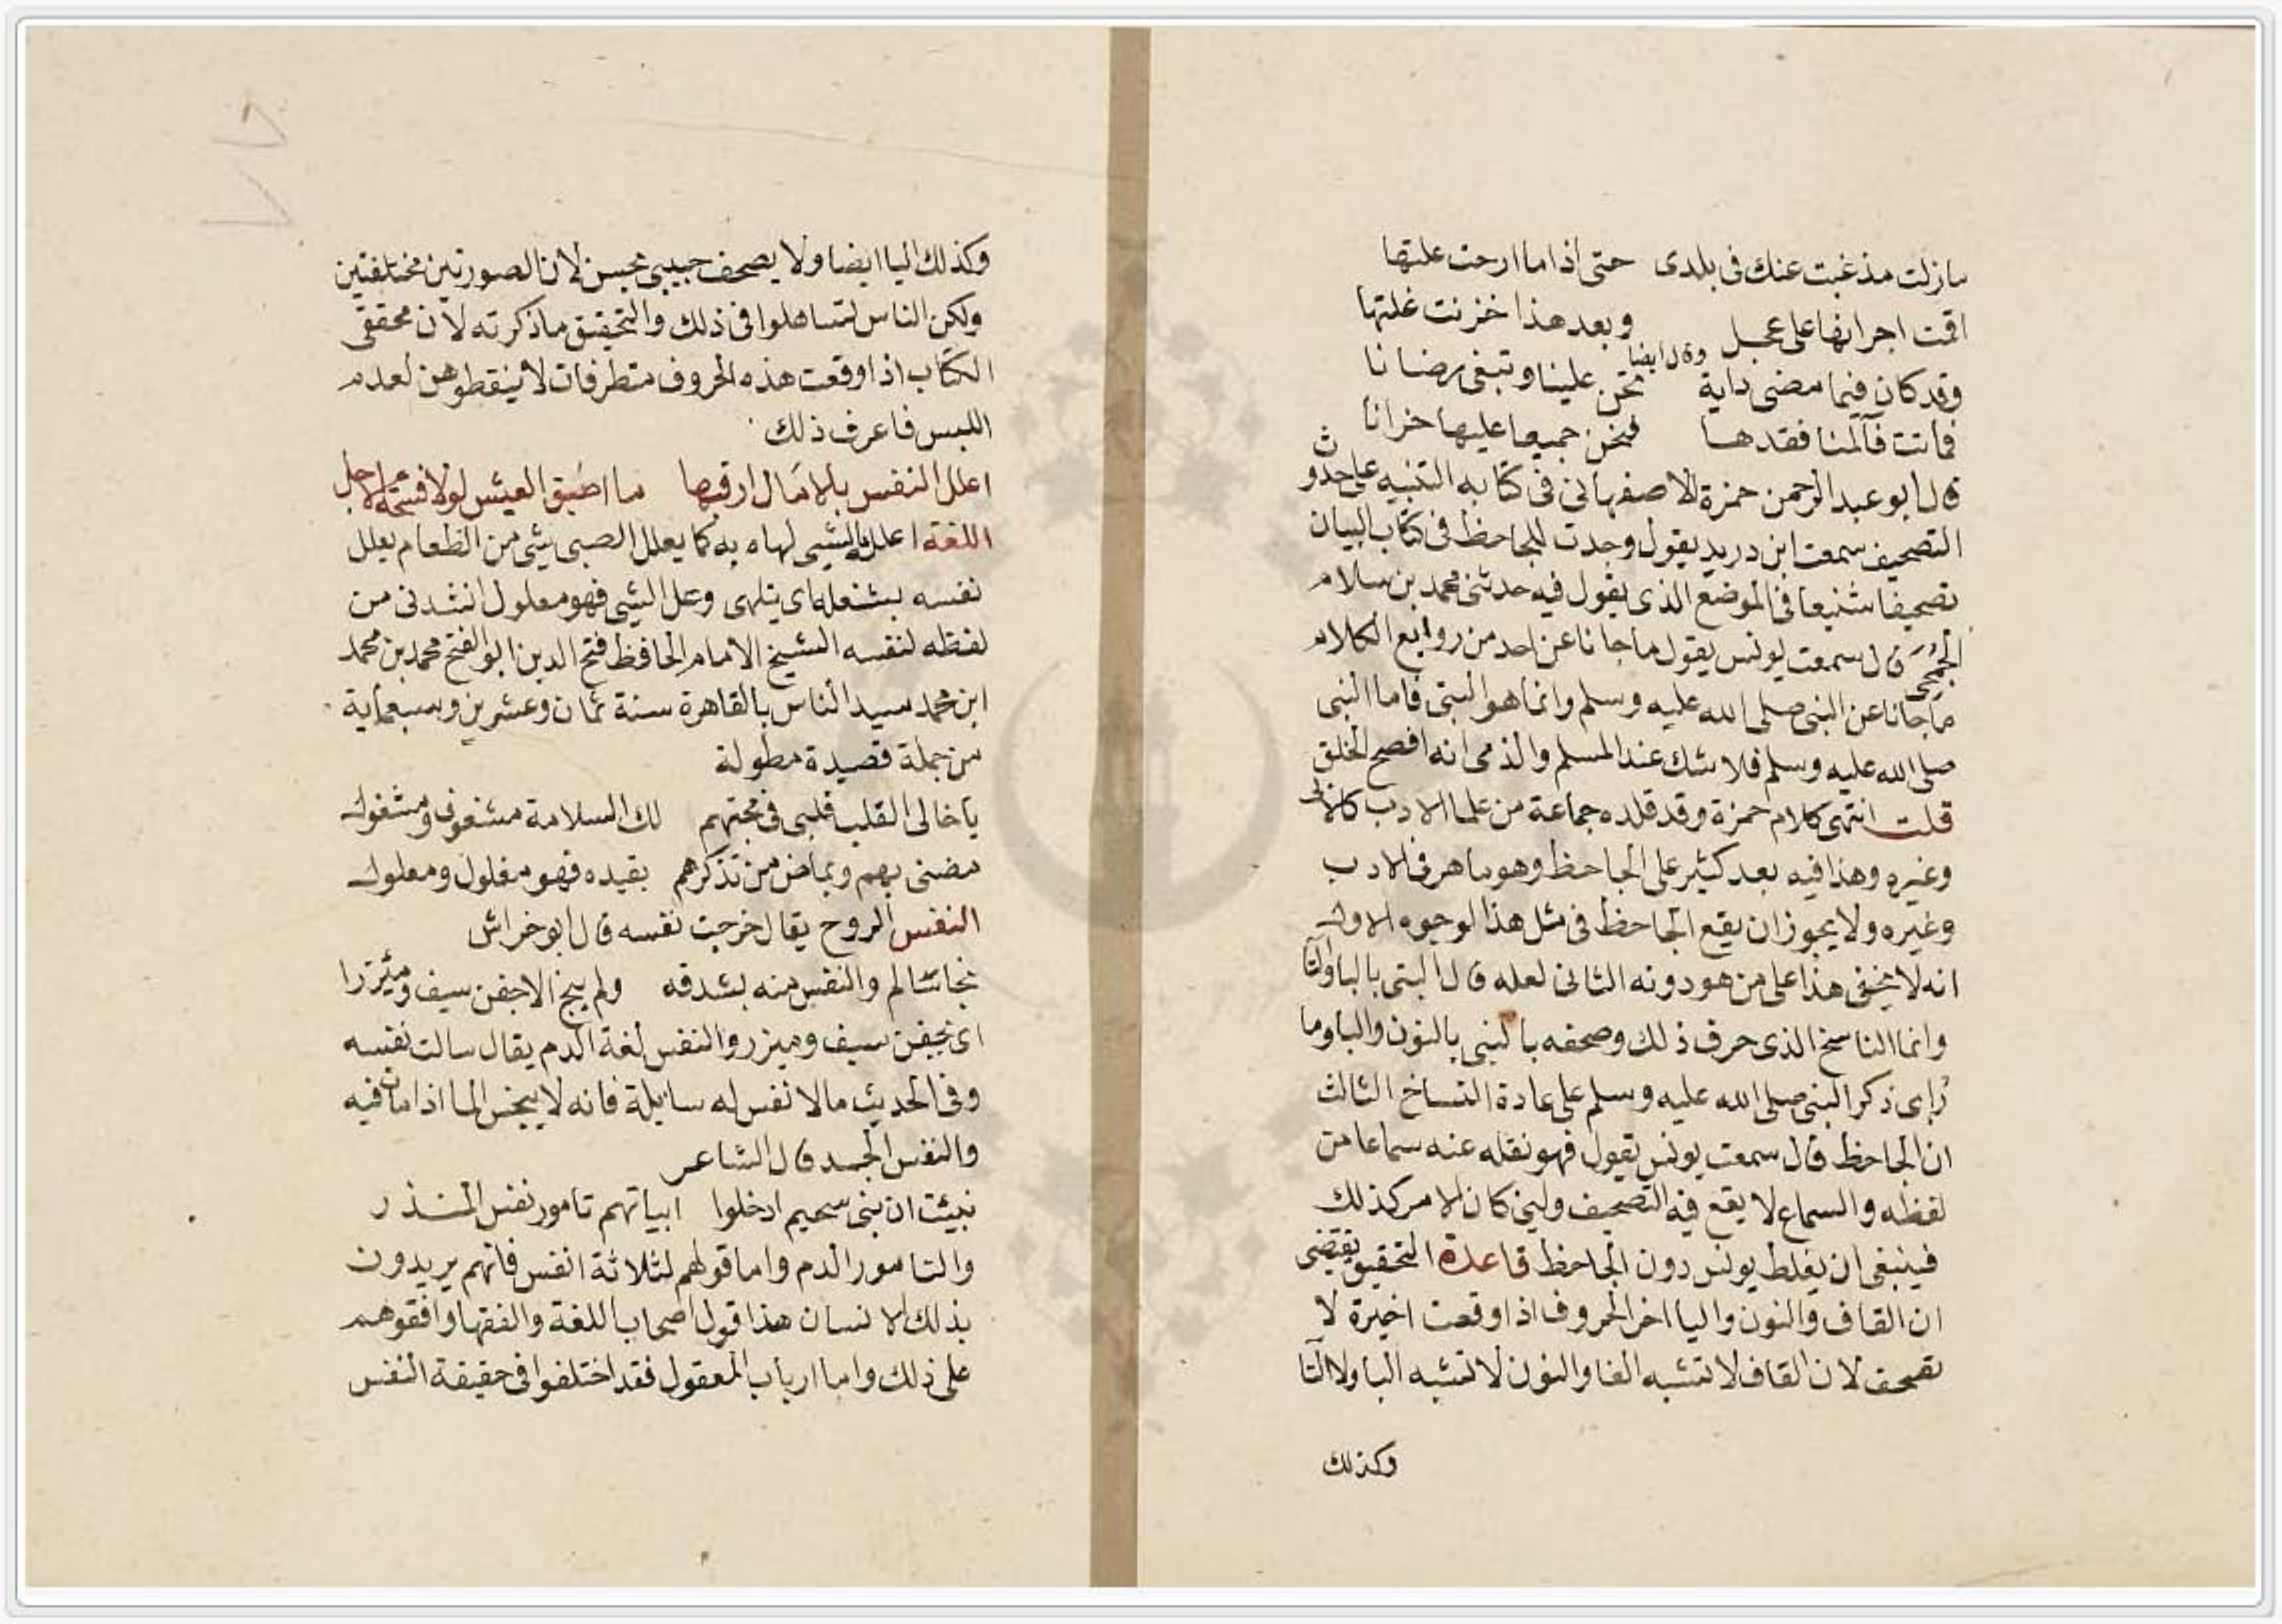 مازلت مذغبت عنك فى بلدى حتى اذا ما ارحت علتها
اقمت اجرانها على عجل وبعد هذا خزنت غلتها
وقال ايضا
وقد كان فيما مضى داية تحن علينا وتبغى رضانا
فماتت فآلمنا فقدها فنحن جميعا عليها حزانا
قال ابو عبد الرحمن حمزة الاصفهانى فى كتابه التنبيه على حدوث
التصحيف سمعت ابن دريد يقول وجدت للجاحظ فى كتاب البيان
تصحيفا شنيعا فى الموضع الذى يقول فيه حدثنى محمد بن سلام
الجمحى قال سمعت يونس يقول ما جانا عن احد من روايع الكلام
ما جانا عن النبى صلى الله عليه وسلم وانما هو البتى فاما النبى
صلى الله عليه وسلم فلا شك عند المسلم والذمى انه افصح الخلق
قلت انتهى كلام حمزة وقد قلده جماعة من علما الادب
وغيره وهذا فيه بعد كثير على الجاحظ وهو ماهر فى الادب
وغيره ولا يجوز ان يقع الجاحظ فى مثل هذا لوجوه الاول
انه لا يخفى هذا على من هو دونه الثانى لعله قال البتى بالبا والتا
وانما الناسخ الذى حرف ذلك وصحفه بالنبى بالنون والبا وما
راى ذكر النبى صلى الله عليه وسلم على عادة النساخ الثالث
ان الجاحظ قال سمعت يونس يقول فهو نقله عنه سماعا من
لفظه والسماع لا يقع فيه التصحيف ولين كان الامر كذلك
فينبغى ان يغلط يونس دون الجاحظ قاعدة التحقيق يقتضى
ان القاف والنون واليا اخر الحروف اذا وقعت اخيرة لا
تصحف لان القاف لا تشبه الفا والنون لا تشبه البا ولا التا
وكذلك
وكذلك اليا ايضا ولا يصحف حبيبى بحسن لان الصورتين مختلفتين
ولكن الناس لتساهلوا فى ذلك والتحقيق ما ذكرته لان محققى
الكتاب اذا وقعت هذه الحروف متطرفات لا ينقطوهن لعدم
اللبس فاعرف ذلك
اعلل النفس بالامال ارقبها ما اضيق العيش لولا فسحة الاجل
اللغة اعلله بالشيى لهاه به كما يعلل الصبى بشى من الطعام يعلل
نفسه بشغلها اى يتلهى وعل الشيى فهو معلول انشدنى من
لفظه لنفسه الشيخ الامام الحافظ فتح الدين ابو الفتح محمد بن محمد
ابن محمد سيد الناس بالقاهرة سنة ثمان وعشرين وسبعماية
من جملة قصيدة مطولة
يا خالى القلب قلبى فى محبتهم لك السلامة مشغوف ومشغول
مضنى بهم وبماض من تذكرهم بقيده فهو مغلول ومعلول
النفس الروح يقال خرجت نفسه قال ابو خراش
نجا سالم والنفس منه بشدقه ولم ينج الا جفن سيف ومئزرا
اى بجفن سيف وميزر والنفس لغة الدم يقال سالت نفسه
وفى الحديث مالا نفس له سايلة فانه لا ينجس الما اذا مات فيه
والنفس الجسد قال الشاعر
نبيئت ان بنى سحيم ادخلوا ابياتهم تامور نفس المنذر
والتامور الدم واما قولهم لثلاثة انفس فانهم يريدون
بذلك الانسان هذا قول اصحاب اللغة والفقها وافقوهم
على ذلك واما ارباب المعقول فقد اختلفوا فى حقيقة النفس